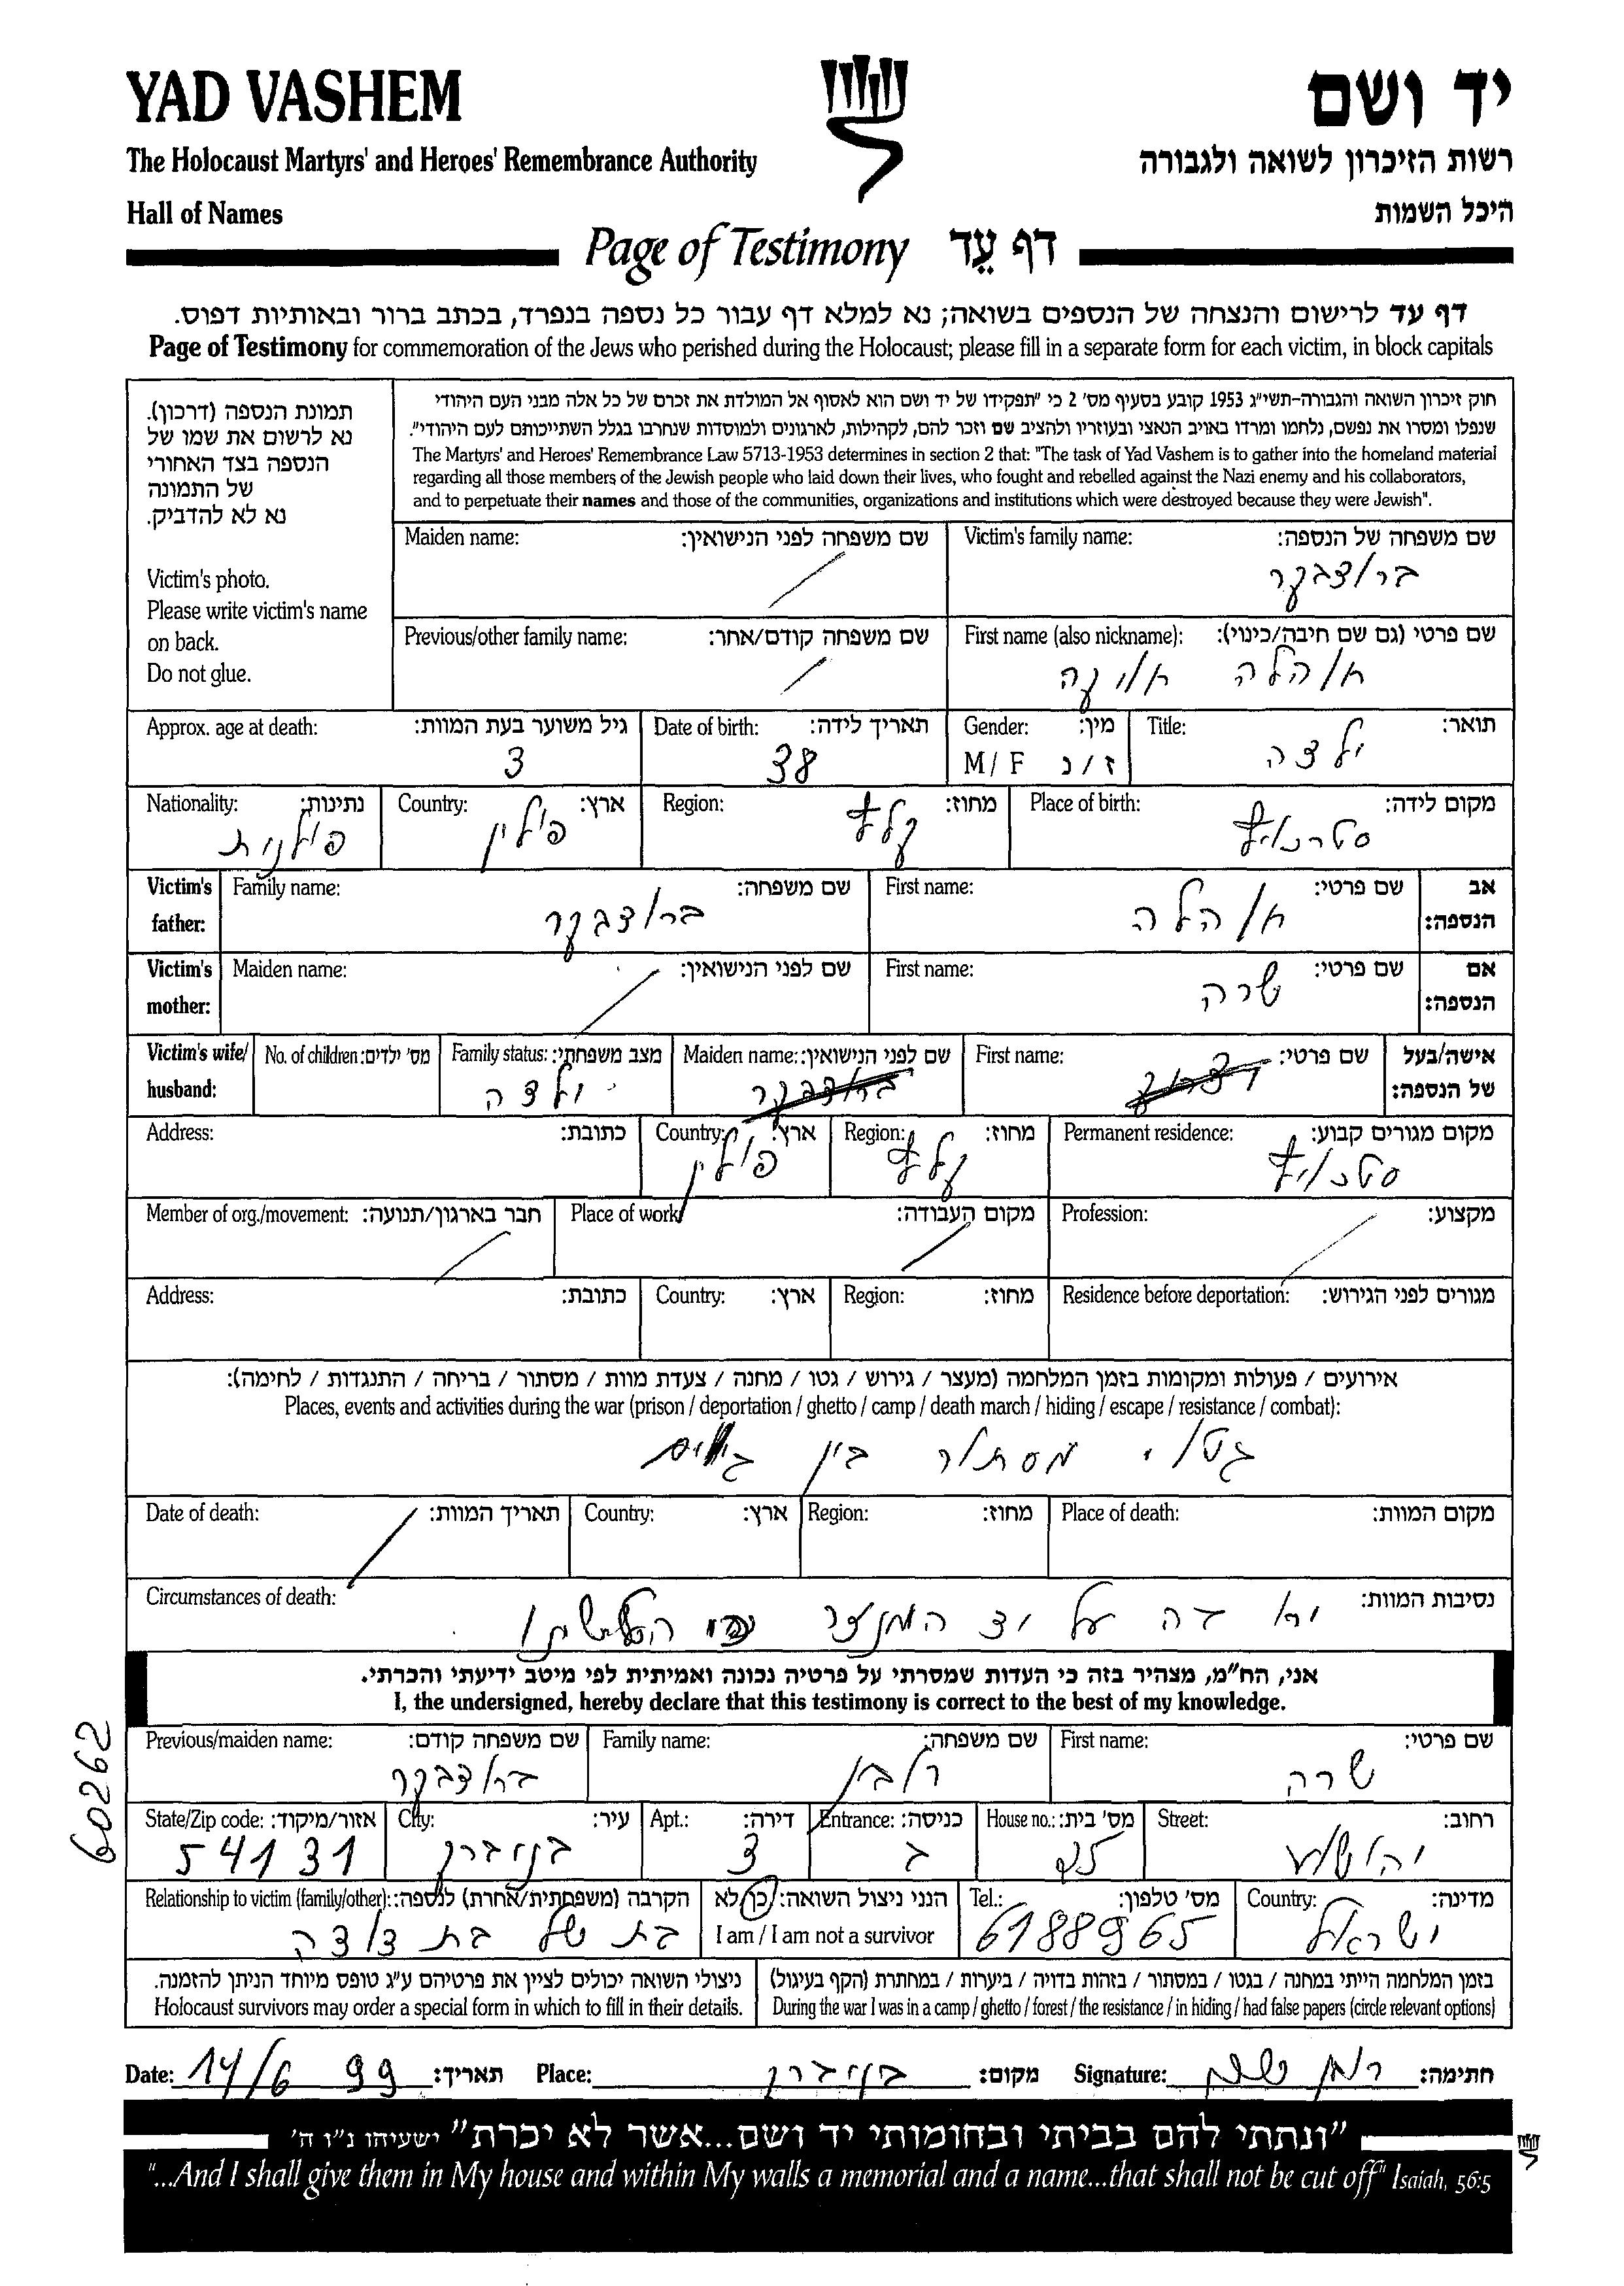 YAD VASHEM
יד ושם
The Holocaust Martyrs' and Heroes' Remembrance Authority
רשות הזיכרון לשואה ולגבורה
Hall of Names
היכל השמות
Page of Testimony דף עֵד
דף עד לרישום והנצחה של הנספים בשואה; נא למלא דף עבור כל נספה בנפרד, בכתב ברור ובאותיות דפוס.
Page of Testimony for commemoration of the Jews who perished during the Holocaust; please fill in a separate form for each victim, in block capitals
תמונת הנספה (דרכון).
נא לרשום את שמו של
הנספה בצד האחורי
של התמונה
נא לא להדביק.
Victim's photo.
Please write victim's name
on back.
Do not glue.
חוק זיכרון השואה והגבורה-תשי"ג 1953 קובע בסעיף מס' 2 כי "תפקידו של יד ושם הוא לאסוף אל המולדת את זכרם של כל אלה מבני העם היהודי
שנפלו ומסרו את נפשם, נלחמו ומרדו באויב הנאצי ובעוזריו ולהציב שם וזכר להם, לקהילות, לארגונים ולמוסדות שנחרבו בגלל השתייכותם לעם היהודי".
The Martyrs' and Heroes' Remembrance Law 5713-1953 determines in section 2 that: "The task of Yad Vashem is to gather into the homeland material
regarding all those members of the Jewish people who laid down their lives, who fought and rebelled against the Nazi enemy and his collaborators,
and to perpetuate their names and those of the communities, organizations and institutions which were destroyed because they were Jewish".
שם משפחה של הנספה: Victim's family name: שם משפחה לפני הנישואין: Maiden name:
שם פרטי (גם שם חיבה/כינוי): First name (also nickname): שם משפחה קודם/אחר: Previous/other family name:
תואר: Title: מין: Gender: תאריך לידה: Date of birth: גיל משוער בעת המוות: Approx. age at death:
ילדה ז / נ M / F 38 3
מקום לידה: Place of birth: מחוז: Region: ארץ: Country: נתינות: Nationality:
קלץ פולין פולנית
אב הנספה: שם פרטי: First name: שם משפחה: Family name: Victim's father:
אם הנספה: שם פרטי: First name: שם לפני הנישואין: Maiden name: Victim's mother:
שרה
אישה/בעל של הנספה: שם פרטי: First name: שם לפני הנישואין: Maiden name: מצב משפחתי: Family status: מס' ילדים: No. of children: Victim's wife/ husband:
ילדה
מקום מגורים קבוע: Permanent residence: מחוז: Region: ארץ: Country: כתובת: Address:
קלץ פולין
מקצוע: Profession: מקום העבודה: Place of work: חבר בארגון/תנועה: Member of org./movement:
מגורים לפני הגירוש: Residence before deportation: מחוז: Region: ארץ: Country: כתובת: Address:
אירועים / פעולות ומקומות בזמן המלחמה (מעצר / גירוש / גטו / מחנה / צעדת מוות / מסתור / בריחה / התנגדות / לחימה):
Places, events and activities during the war (prison / deportation / ghetto / camp / death march / hiding / escape / resistance / combat):
גטו, מסתור בין גויים
מקום המוות: Place of death: מחוז: Region: ארץ: Country: תאריך המוות: Date of death:
נסיבות המוות: Circumstances of death:
על
אני, הח"מ, מצהיר בזה כי העדות שמסרתי על פרטיה נכונה ואמיתית לפי מיטב ידיעתי והכרתי.
I, the undersigned, hereby declare that this testimony is correct to the best of my knowledge.
שם פרטי: First name: שם משפחה: Family name: שם משפחה קודם: Previous/maiden name:
שרה
60262
רחוב: Street: מס' בית: House no.: כניסה: Entrance: דירה: Apt.: עיר: City: אזור/מיקוד: State/Zip code:
יהושע 25 ג 3 בני ברק 54131
מדינה: Country: מס' טלפון: Tel.: הנני ניצול השואה: כן/לא I am / I am not a survivor הקרבה (משפחתית/אחרת) לנספה: Relationship to victim (family/other):
ישראל 6188965 בת של בת דודה
בזמן המלחמה הייתי במחנה / בגטו / במסתור / בזהות בדויה / ביערות / במחתרת (הקף בעיגול)
During the war I was in a camp / ghetto / forest / the resistance / in hiding / had false papers (circle relevant options)
ניצולי השואה יכולים לציין את פרטיהם ע"ג טופס מיוחד הניתן להזמנה.
Holocaust survivors may order a special form in which to fill in their details.
חתימה: Signature: מקום: בני ברק Place: תאריך: 14/6 99 Date:
"ונתתי להם בביתי ובחומותי יד ושם...אשר לא יכרת" ישעיהו נ"ו ה'
"...And I shall give them in My house and within My walls a memorial and a name...that shall not be cut off" Isaiah, 56:5